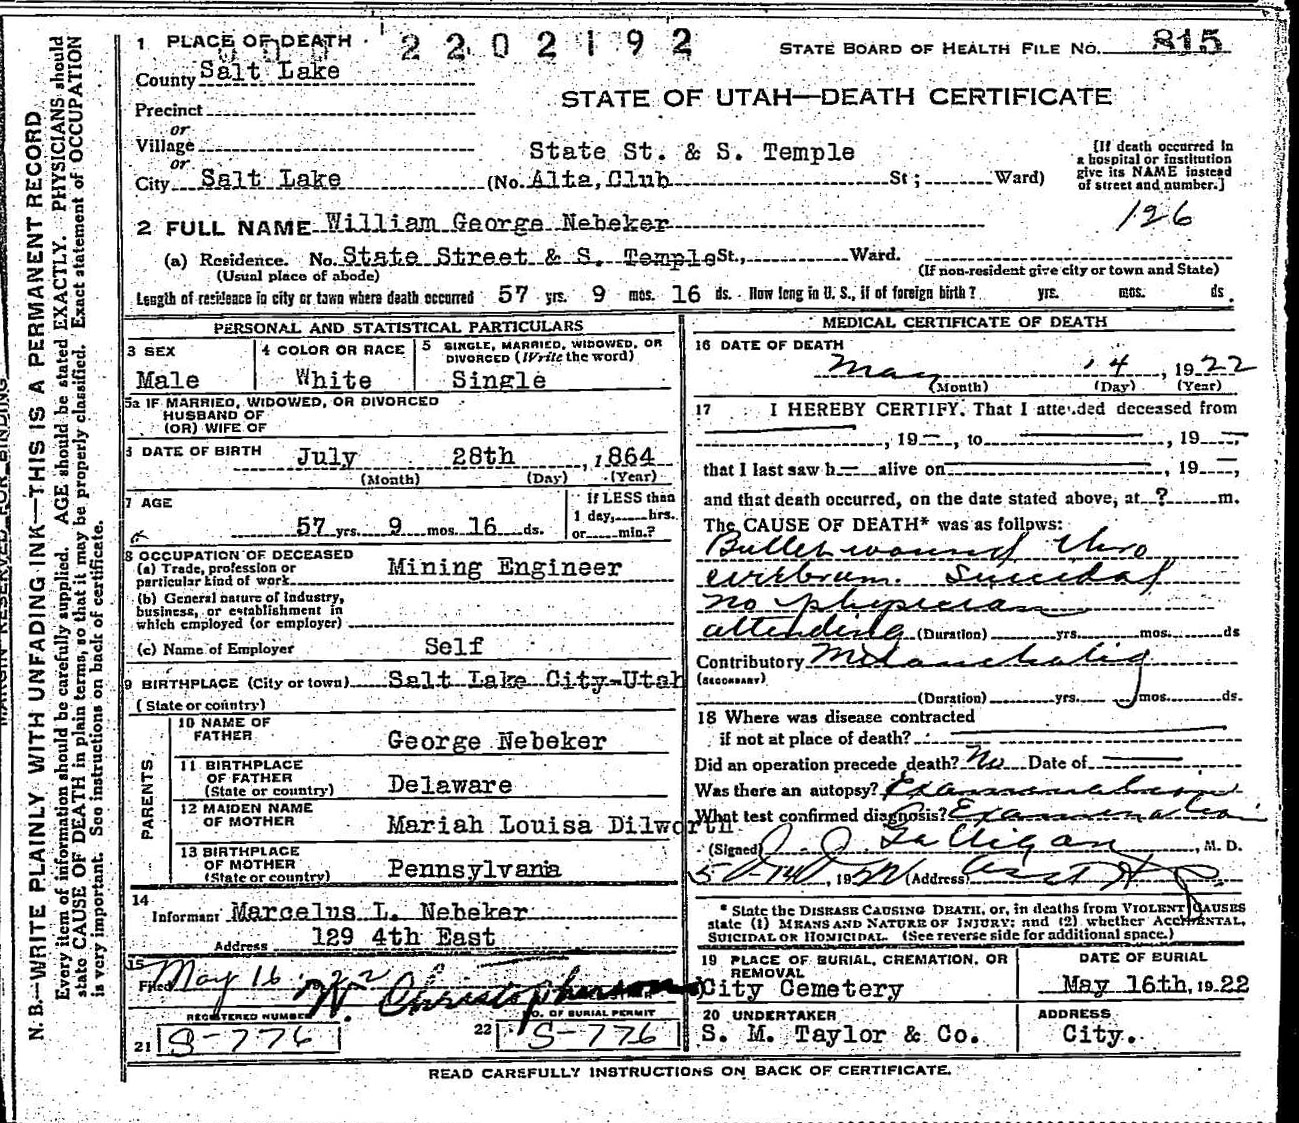 1 PLACE OF DEATH
2202192
STATE BOARD OF HEALTH FILE NO. 815
County Salt Lake
STATE OF UTAH—DEATH CERTIFICATE
Precinct
or
Village
or
City Salt Lake
State St. & S. Temple
(No. Alta, Club St; Ward)
[If death occurred in
a hospital or institution
give its NAME instead
of street and number.]
126
2 FULL NAME William George Nebeker
(a) Residence. No. State Street & S. Temple St., Ward.
(Usual place of abode) (If non-resident give city or town and State)
Length of residence in city or town where death occurred 57 yrs. 9 mos. 16 ds. How long in U. S., if of foreign birth? yrs. mos. ds.
PERSONAL AND STATISTICAL PARTICULARS
3 SEX
Male
4 COLOR OR RACE
White
5 SINGLE, MARRIED, WIDOWED, OR
DIVORCED (Write the word)
Single
5a IF MARRIED, WIDOWED, OR DIVORCED
HUSBAND OF
(OR) WIFE OF
6 DATE OF BIRTH July 28th, 1864
(Month) (Day) (Year)
7 AGE
57 yrs. 9 mos. 16 ds.
If LESS than
1 day, hrs.
or min.?
8 OCCUPATION OF DECEASED
(a) Trade, profession or
particular kind of work Mining Engineer
(b) General nature of Industry,
business, or establishment in
which employed (or employer)
(c) Name of Employer Self
9 BIRTHPLACE (City or town) Salt Lake City-Utah
(State or country)
PARENTS
10 NAME OF
FATHER
George Nebeker
11 BIRTHPLACE
OF FATHER
(State or country) Delaware
12 MAIDEN NAME
OF MOTHER
Mariah Louisa Dilworth
13 BIRTHPLACE
OF MOTHER
(State or country) Pennsylvana
14
Informant Marcelus L. Nebeker
Address 129 4th East
15
Filed May 16 22 W. Christopherson
REGISTERED NUMBER
21 S-776
NO. OF BURIAL PERMIT
22 S-776
MEDICAL CERTIFICATE OF DEATH
16 DATE OF DEATH
May 14, 1922
(Month) (Day) (Year)
17 I HEREBY CERTIFY, That I attended deceased from
, 19 , to , 19 ,
that I last saw h alive on , 19 ,
and that death occurred, on the date stated above, at ? m.
The CAUSE OF DEATH* was as follows:
Bullet wound thro
cerebrum. Suicidal
no physician
attending (Duration) yrs. mos. ds
Contributory Melancholia
(SECONDARY)
(Duration) yrs. mos. ds.
18 Where was disease contracted
if not at place of death?
Did an operation precede death? No Date of
Was there an autopsy? Examination
What test confirmed diagnosis? Examination
(Signed) J. J. Galligan, M. D.
5-14, 1922 (Address)
* State the DISEASE CAUSING DEATH, or, in deaths from VIOLENT CAUSES
state (1) MEANS AND NATURE OF INJURY; and (2) whether ACCIDENTAL,
SUICIDAL OR HOMICIDAL. (See reverse side for additional space.)
19 PLACE OF BURIAL, CREMATION, OR
REMOVAL
City Cemetery
DATE OF BURIAL
May 16th, 1922
20 UNDERTAKER
S. M. Taylor & Co.
ADDRESS
City.
READ CAREFULLY INSTRUCTIONS ON BACK OF CERTIFICATE.
MARGIN RESERVED FOR BINDING
N. B.—WRITE PLAINLY WITH UNFADING INK—THIS IS A PERMANENT RECORD
Every item of information should be carefully supplied. AGE should be stated EXACTLY. PHYSICIANS should
state CAUSE OF DEATH in plain terms, so that it may be properly classified. Exact statement of OCCUPATION
is very important. See instructions on back of certificate.